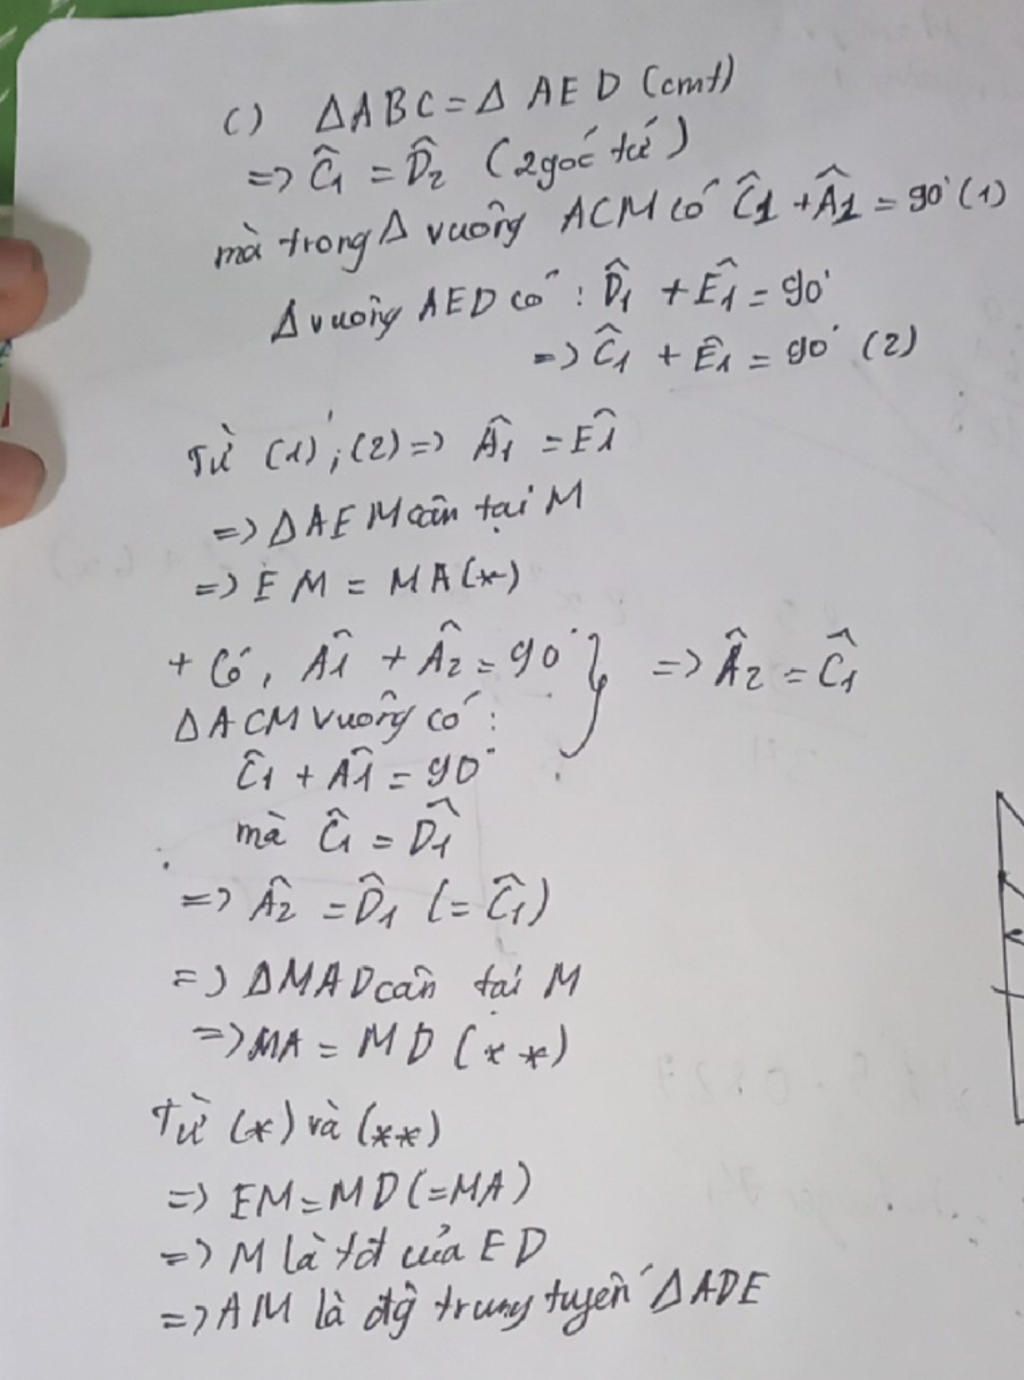 c) ΔABC = Δ AED (cmt)
=> Ĉ1 = D̂2 (2 góc tứ)
mà trong Δ vuông ACM có Ĉ1 + Â1 = 90° (1)
Δ vuông AED có : D̂1 + Ê1 = 90°
=> Ĉ1 + Ê1 = 90° (2)
Từ (1) ; (2) => Â1 = Ê1
=> Δ AEM cân tại M
=> EM = MA (*)
+ Có, Â1 + Â2 = 90° } => Â2 = Ĉ1
Δ ACM vuông có :
Ĉ1 + Â1 = 90°
mà Ĉ1 = D̂1
=> Â2 = D̂1 (= Ĉ1)
=> ΔMAD cân tại M
=> MA = MD (**)
Từ (*) và (**)
=> EM = MD (=MA)
=> M là tđ của ED
=> AM là đg trung tuyến ΔADE